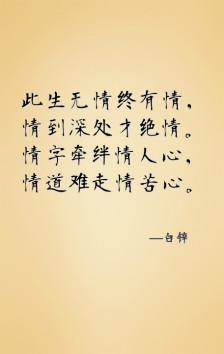 此生无情终有情，
情到深处才绝情。
情字牵绊情人心，
情道难走情苦心。
—白锌